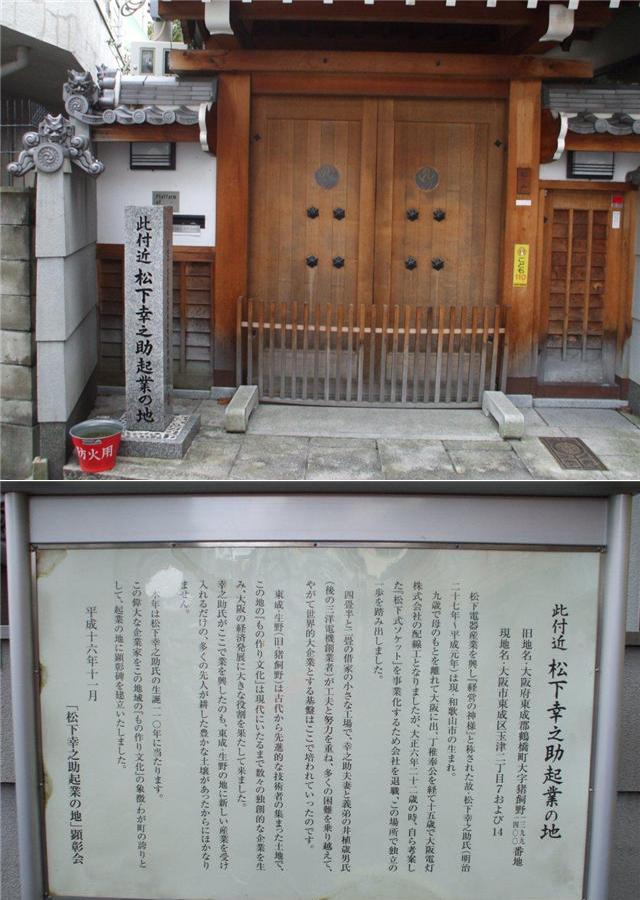 此付近 松下幸之助起業の地
防火用
こども
110
此付近 松下幸之助起業の地
旧地名:大阪府東成郡鶴橋町大字猪飼野一三九九一四〇〇番地
現地名:大阪市東成区玉津二丁目7および14
松下電器産業を興し『経営の神様』と称された故・松下幸之助氏(明治
二十七年〜平成元年)は現・和歌山市の生まれ。
九歳で母のもとを離れて大阪に出、丁稚奉公を経て十五歳で大阪電灯
株式会社の配線工となりましたが、大正六年・二十二歳の時、自ら考案し
た『松下式ソケット』を事業化するため会社を退職、この場所で独立の
一歩を踏み出しました。
四畳半と二畳の借家の小さな工場で、幸之助夫妻と義弟の井植歳男氏
(後の三洋電機創業者)が工夫と努力を重ね、多くの困難を乗り越えて、
やがて世界的大企業とする基盤はここで培われていったのです。
東成・生野(旧・猪飼野)は古代から先進的な技術者の集まった土地で、
この地の『もの作り文化』は現代にいたるまで数々の独創的な企業を生
み、大阪の経済発展に大きな役割を果たして来ました。
幸之助氏がここで業を興したのも、東成・生野の地に新しい産業を受け
入れるだけの、多くの先人が耕した豊かな土壌があったからにほかなり
ません。
本年は松下幸之助氏の生誕一一〇年に当たります。
この偉大な企業家をこの地域の『もの作り文化』の象徴、わが町の誇りと
して、起業の地に顕彰碑を建立いたしました。
平成十六年十一月
「松下幸之助起業の地」顕彰会